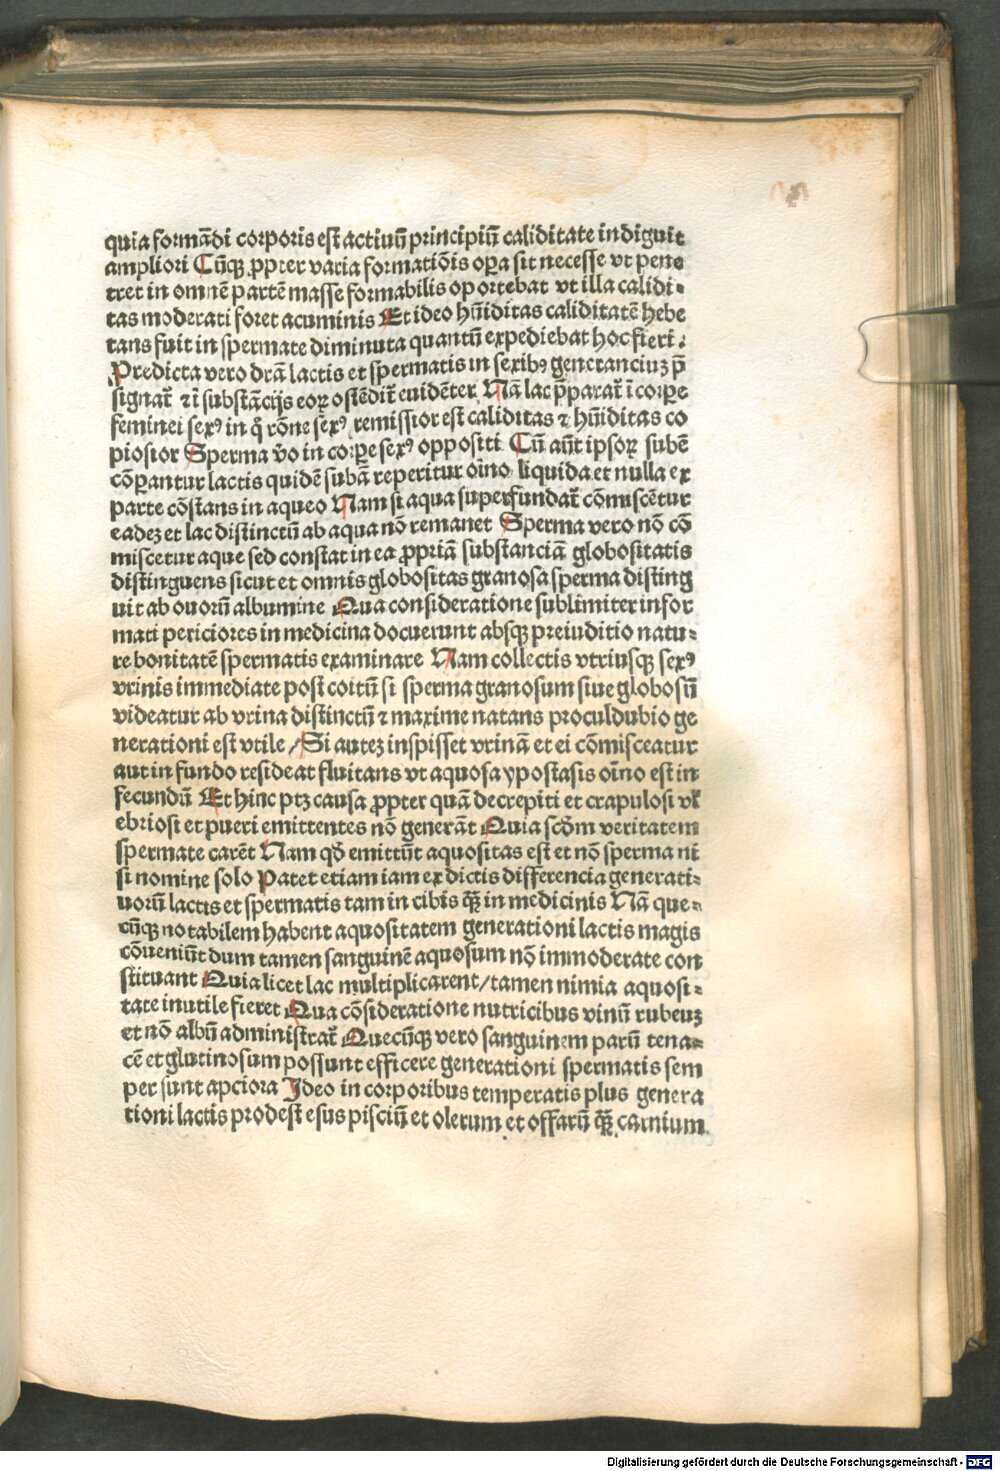 quia formãdi corporis est actiuũ principiũ caliditate indiguit
ampliori Cũqꝫ ꝓpter varia formatiõis oꝑa sit necesse vt pene
tret in omnẽ partẽ masse formabilis oportebat vt illa calidi⸗
tas moderati foret acuminis Et ideo hũiditas caliditatẽ hebe
tans fuit in spermate diminuta quantũ expediebat hoc fieri.
Predicta vero dr̃am lactis et spermatis in sexibꝰ generanciuʒ p̃
signat᷑ ⁊ i substãcijs eoꝝ ostẽdit᷑ euidẽter Nã lac p̃parat᷑ ĩ corꝑe
feminei sexꝰ in q̃ rõne sexꝰ remissior est caliditas ⁊ hũiditas co
piosior Sperma v̊o in corꝑe sexꝰ oppositi Cũ aũt ipsoꝝ subẽ
cõꝑantur lactis quidẽ subã reperitur oĩno liquida et nulla ex
parte cõstans in aqueo Nam si aqua superfundat᷑ cõmiscẽtur
eadeʒ et lac distinctũ ab aqua nõ remanet Sperma vero nõ cõ
miscetur aque sed constat in ea ꝓpriã substanciã globositatis
distinguens sicut et omnis globositas granosa sperma disting
uit ab ouorũ albumine Qua consideratione sublimiter infor
mati periciores in medicina docuerunt absqꝫ preiuditio natu⸗
re bonitatẽ spermatis examinare Nam collectis vtriusqꝫ sexꝰ
vrinis immediate post coitũ si sperma granosum siue globosũ
videatur ab vrina distinctũ ⁊ maxime natans proculdubio ge
nerationi est vtile / Si auteʒ inspisset vrinã et ei cõmisceatur
aut in fundo resideat fluitans vt aquosa ypostasis oĩno est in
fecundũ Et hinc ptʒ causa ꝓpter quã decrepiti et crapulosi vł
ebriosi et pueri emittentes nõ generãt Quia scd̃m veritatem
spermate carẽt Nam qď emittũt aquositas est et nõ sperma ni
si nomine solo Patet etiam iam ex dictis differencia generati⸗
uorũ lactis et spermatis tam in cibis q̃ꝫ in medicinis Nã que⸗
cũqꝫ notabilem habent aquositatem generationi lactis magis
cõueniũt dum tamen sanguinẽ aquosum nõ immoderate con
stituant Quia licet lac multiplicarent / tamen nimia aquosi⸗
tate inutile fieret Qua cõsideratione nutricibus vinũ rubeuʒ
et nõ albũ administrat᷑ Quecũqꝫ vero sanguinem parũ tena⸗
cẽ et glutinosum possunt efficere generationi spermatis sem
per sunt apciora Ideo in corporibus temperatis plus genera
tioni lactis prodest esus pisciũ et olerum et offarũ q̃ꝫ carnium
Digitalisierung gefördert durch die Deutsche Forschungsgemeinschaft - DFG